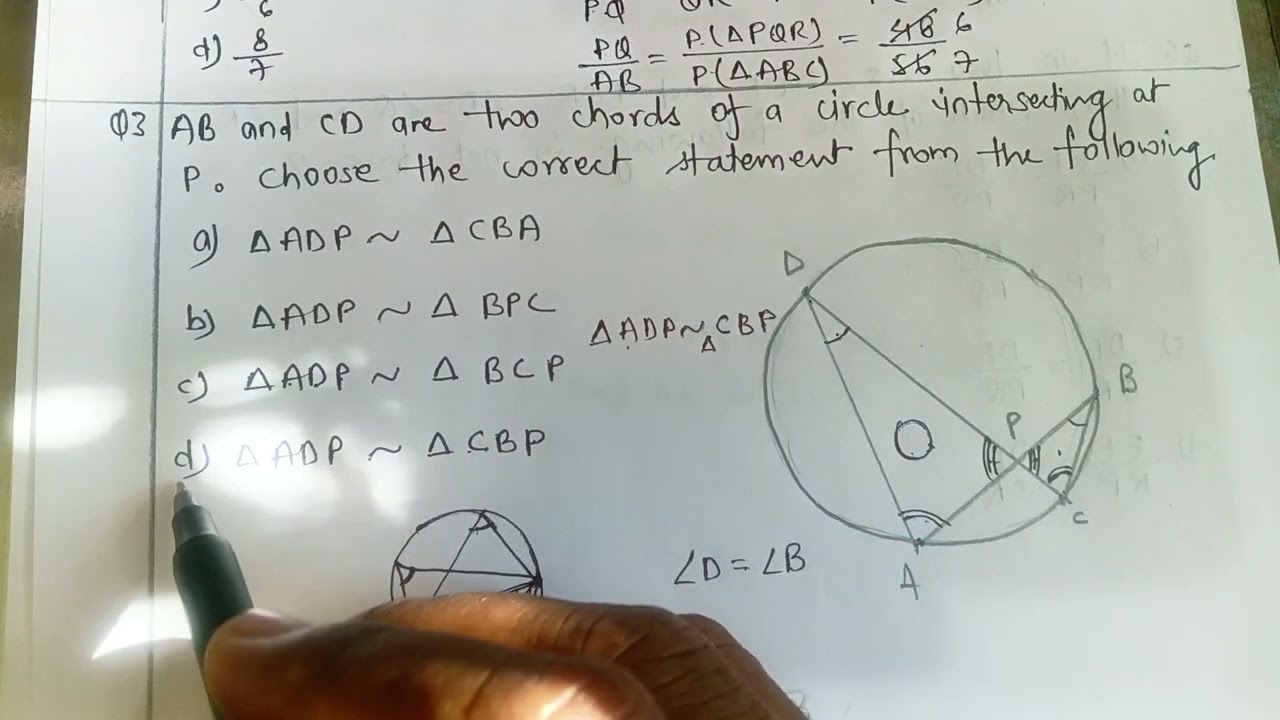 6
PQ
d) 8/7
PQ/AB = P.(ΔPQR)/P(ΔABC) = 48/56 6/7
Q3 AB and CD are two chords of a circle intersecting at
P. choose the correct statement from the following
a) ΔADP ~ ΔCBA
b) ΔADP ~ Δ BPC
c) ΔADP ~ Δ BCP
d) ΔADP ~ ΔCBP
ΔADP ~ ΔCBP
D
B
P
O
C
A
∠D = ∠B